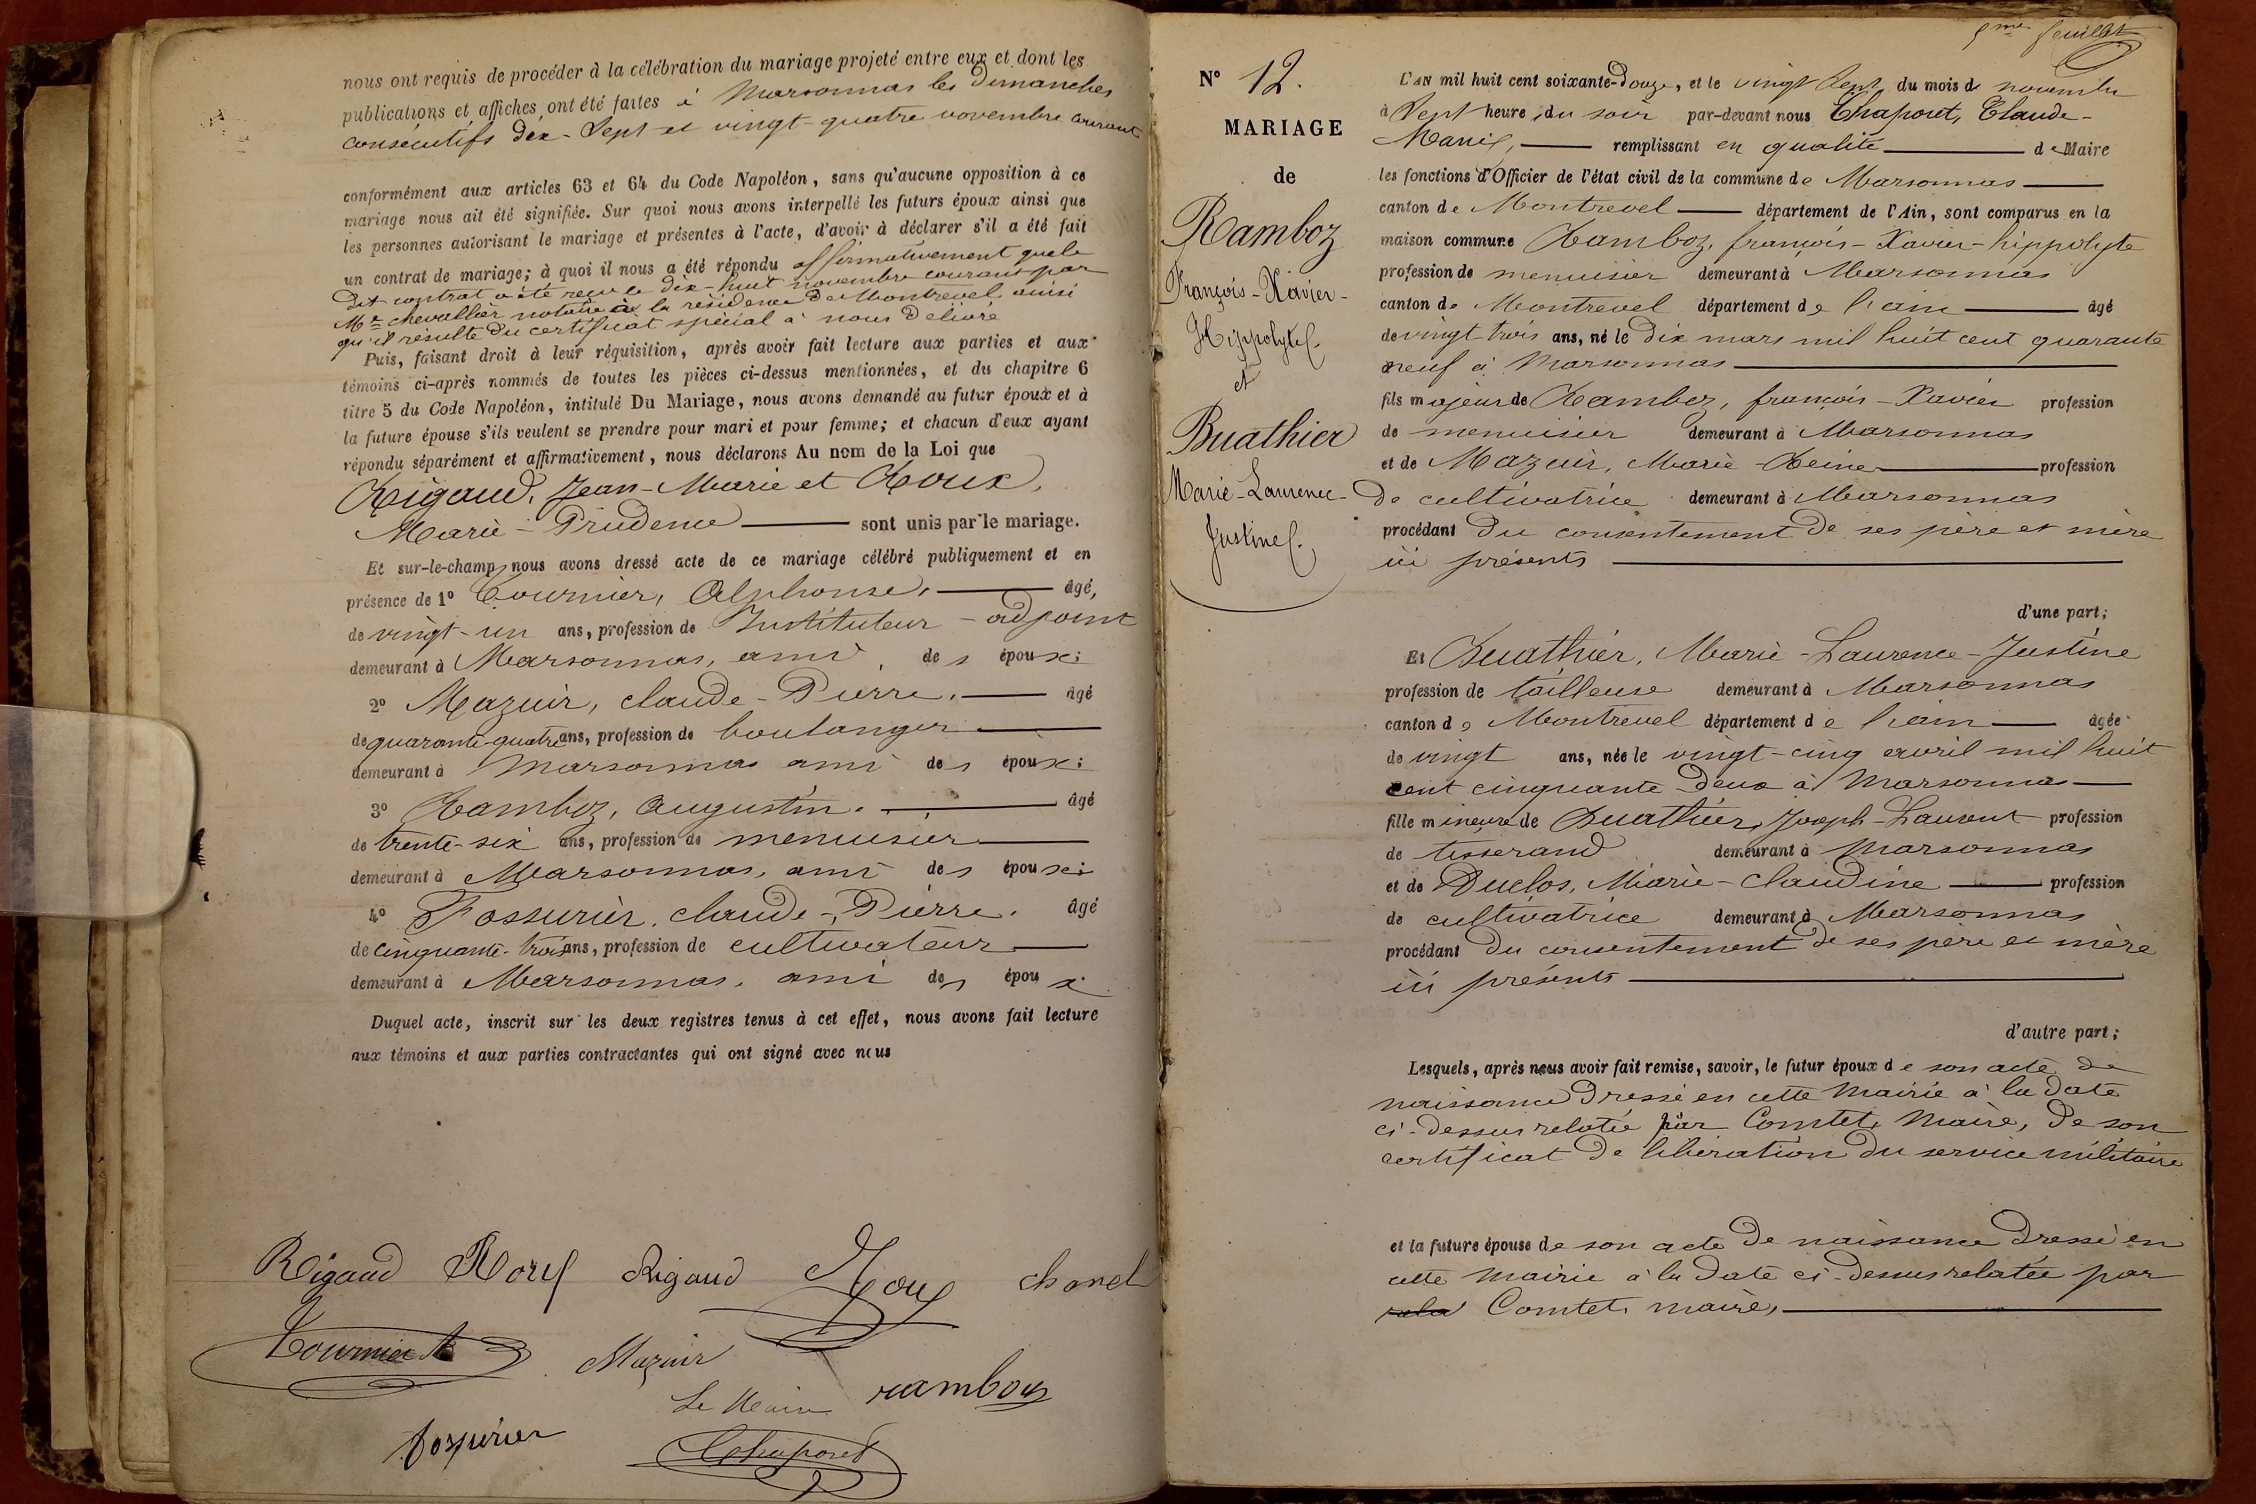 nous ont requis de procéder à la célébration du mariage projeté entre eux et dont les
publications et affiches ont été faites à Marsonnas les dimanches
consécutifs dix-sept et vingt-quatre novembre courant
conformément aux articles 63 et 64 du Code Napoléon, sans qu'aucune opposition à ce
mariage nous ait été signifiée. Sur quoi nous avons interpellé les futurs époux ainsi que
les personnes autorisant le mariage et présentes à l'acte, d'avoir à déclarer s'il a été fait
un contrat de mariage; à quoi il nous a été répondu affirmativement que le
dit contrat a été reçu le dix-huit novembre courant par
Mr chevallier notaire à la résidence de Montrevel ainsi
qu'il résulte du certificat spécial à nous délivré
Puis, faisant droit à leur réquisition, après avoir fait lecture aux parties et aux
témoins ci-après nommés de toutes les pièces ci-dessus mentionnées, et du chapitre 6
titre 5 du Code Napoléon, intitulé Du Mariage, nous avons demandé au futur époux et à
la future épouse s'ils veulent se prendre pour mari et pour femme; et chacun d'eux ayant
répondu séparément et affirmativement, nous déclarons Au nom de la Loi que
Rigaud, Jean-Marie et Roux,
Marie-Prudence sont unis par le mariage.
Et sur-le-champ nous avons dressé acte de ce mariage célébré publiquement et en
présence de 1° Tournier, Alphonse, âgé,
de vingt-un ans, profession de Instituteur-adjoint
demeurant à Marsonnas, ami des époux;
2° Mazuir, claude-Pierre, âgé
de quarante-quatre ans, profession de boulanger
demeurant à Marsonnas ami des époux;
3° Ramboz, Augustin. âgé
de trente-six ans, profession de menuisier
demeurant à Marsonnas, ami des époux;
4° Fossurier, claude-Pierre. âgé
de cinquante-trois ans, profession de cultivateur
demeurant à Marsonnas, ami des époux.
Duquel acte, inscrit sur les deux registres tenus à cet effet, nous avons fait lecture
aux témoins et aux parties contractantes qui ont signé avec nous
Rigaud Roux Rigaud Roux chanel
Tournier A
Mazuir
Le Maire ramboz
fossurier
Chaponet
5me feuillet
N° 12.
MARIAGE
de
Ramboz
François-Xavier-
Hippolyte
et
Buathier
Marie-Laurence-
Justine.
L'AN mil huit cent soixante-douze, et le vingt sept du mois de novembre
à Sept heure du soir par-devant nous Chaponet, Claude-
Marie, remplissant en qualité de Maire
les fonctions d'Officier de l'état civil de la commune de Marsonnas
canton de Montrevel département de l'Ain, sont comparus en la
maison commune Ramboz, françois-Xavier-hippolyte
profession de menuisier demeurant à Marsonnas
canton de Montrevel département de l'ain âgé
de vingt-trois ans, né le dix mars mil huit cent quarante
neuf à Marsonnas
fils majeur de Ramboz, françois-Xavier profession
de menuisier demeurant à Marsonnas
et de Mazuir, Marie-Reine profession
de cultivatrice demeurant à Marsonnas
procédant du consentement de ses père et mère
ici présents
d'une part;
Et Buathier, Marie-Laurence-Justine
profession de tailleuse demeurant à Marsonnas
canton de Montrevel département de l'ain âgée
de vingt ans, née le vingt-cinq avril mil huit
cent cinquante-deux à Marsonnas
fille mineure de Buathier, Joseph-Laurent profession
de tisserand demeurant à Marsonnas
et de Duclos, Marie-claudine profession
de cultivatrice demeurant à Marsonnas
procédant du consentement de ses père et mère
ici présents
d'autre part;
Lesquels, après nous avoir fait remise, savoir, le futur époux de son acte de
naissance dressé en cette Mairie à la date
ci-dessus relatée par Comtet, Maire, de son
certificat de libération du service militaire
et la future épouse de son acte de naissance dressé en
cette mairie à la date ci-dessus relatée par
Comtet, maire,